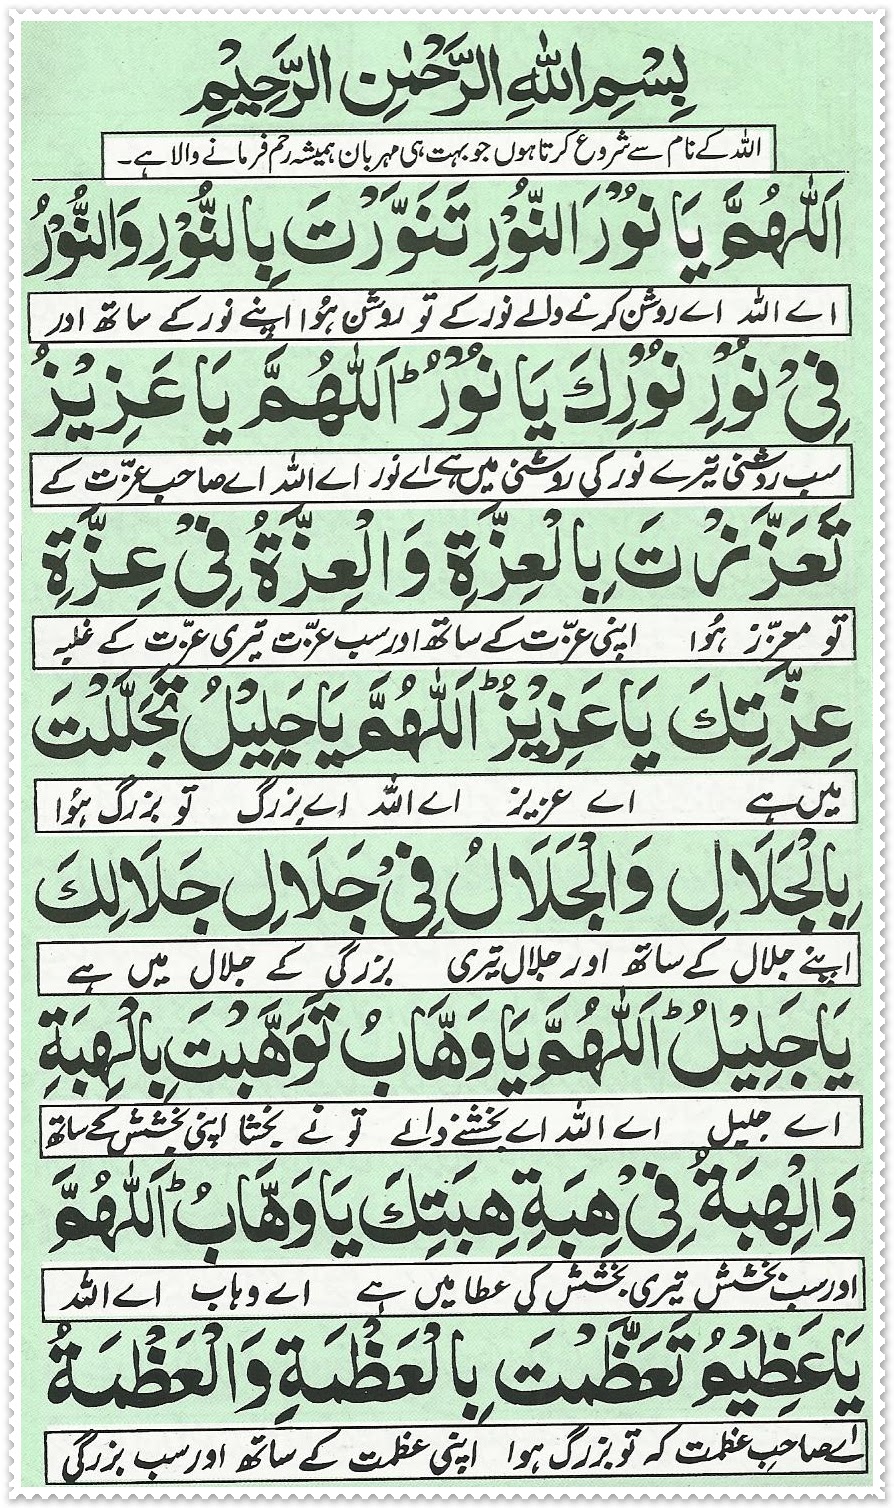 بِسْمِ اللّٰهِ الرَّحْمٰنِ الرَّحِيْمِ
اللہ کے نام سے شروع کرتا ہوں جو بہت ہی مہربان ہمیشہ رحم فرمانے والا ہے۔
اَللّٰهُمَّ يَا نُوْرَ النُّوْرِ تَنَوَّرْتَ بِالنُّوْرِ وَالنُّوْرُ
اے اللہ اے روشن کرنے والے نور کے تو روشن ہُوا اپنے نور کے ساتھ اور
فِيْ نُوْرِ نُوْرِكَ يَا نُوْرُ ؕ اَللّٰهُمَّ يَا عَزِيْزُ
سب روشنی تیرے نور کی روشنی میں ہے اے نور اے اللہ اے صاحب عزّت کے
تَعَزَّزْتَ بِالْعِزَّةِ وَالْعِزَّةُ فِيْ عِزَّةِ
تو معزّز ہُوا اپنی عزّت کے ساتھ اور سب عزّت تیری عزّت کے غلبہ
عِزَّتِكَ يَا عَزِيْزُ ؕ اَللّٰهُمَّ يَا جَلِيْلُ تَجَلَّلْتَ
میں ہے اے عزیز اے اللہ اے بزرگ تو بزرگ ہُوا
بِالْجَلَالِ وَالْجَلَالُ فِيْ جَلَالِ جَلَالِكَ
اپنے جلال کے ساتھ اور جلال تیری بزرگی کے جلال میں ہے
يَا جَلِيْلُ ؕ اَللّٰهُمَّ يَا وَهَّابُ تَوَهَّبْتَ بِالْهِبَةِ
اے جلیل اے اللہ اے بخشنے والے تو نے بخشا اپنی بخشش کے ساتھ
وَالْهِبَةُ فِيْ هِبَةِ هِبَتِكَ يَا وَهَّابُ ؕ اَللّٰهُمَّ
اور سب بخشش تیری بخشش کی عطا میں ہے اے وہاب اے اللہ
يَا عَظِيْمُ تَعَظَّمْتَ بِالْعَظْمَةِ وَالْعَظْمَةُ
اے صاحبِ عظمت کہ تو بزرگ ہوا اپنی عظمت کے ساتھ اور سب بزرگی